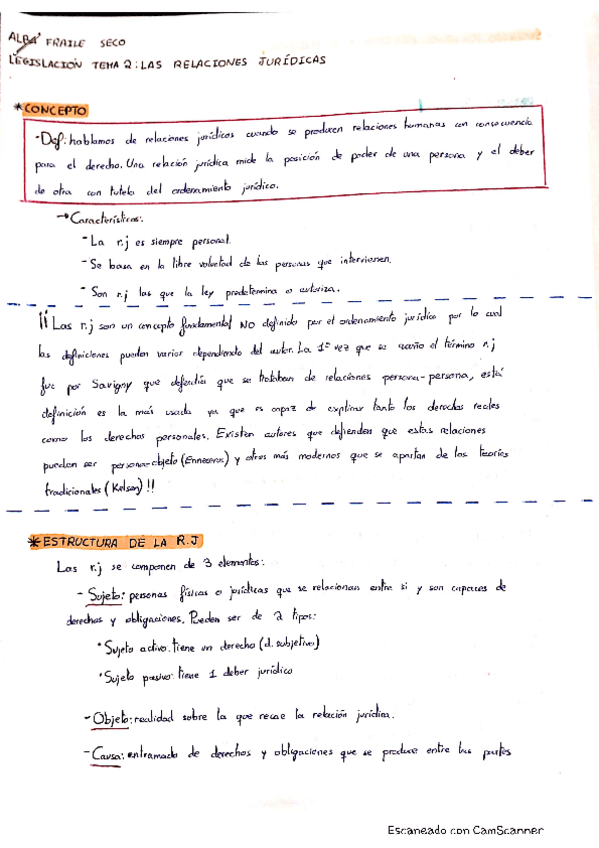 ALBA FRAILE SECO
LEGISLACIÓN TEMA 2: LAS RELACIONES JURÍDICAS
*CONCEPTO
-Def: hablamos de relaciones jurídicas cuando se producen relaciones humanas con consecuencia
para el derecho. Una relación jurídica mide la posición de poder de una persona y el deber
de otra con tutela del ordenamiento jurídico.
→Características:
- La r.j es siempre personal.
- Se basa en la libre voluntad de las personas que intervienen.
- Son r.j las que la ley predetermina o autoriza.
¡¡ Las r.j son un concepto fundamental NO definido por el ordenamiento jurídico por lo cual
las definiciones pueden variar dependiendo del autor. La 1ª vez que se acuño el término r.j
fue por Savigny que defendía que se trataban de relaciones persona-persona, está
definición es la más usada ya que es capaz de explicar tanto los derechos reales
como los derechos personales. Existen autores que defienden que estas relaciones
pueden ser persona-objeto (Enneccerus) y otros más modernos que se apartan de las teorías
tradicionales (Kelsen) !!
*ESTRUCTURA DE LA R.J
Las r.j se componen de 3 elementos:
- Sujeto: personas físicas o jurídicas que se relacionan entre si y son capaces de
derechos y obligaciones. Pueden ser de 2 tipos:
• Sujeto activo: tiene un derecho (d. subjetivo)
• Sujeto pasivo: tiene 1 deber jurídico
- Objeto: realidad sobre la que recae la relación jurídica.
- Causa: entramado de derechos y obligaciones que se produce entre las partes
Escaneado con CamScanner